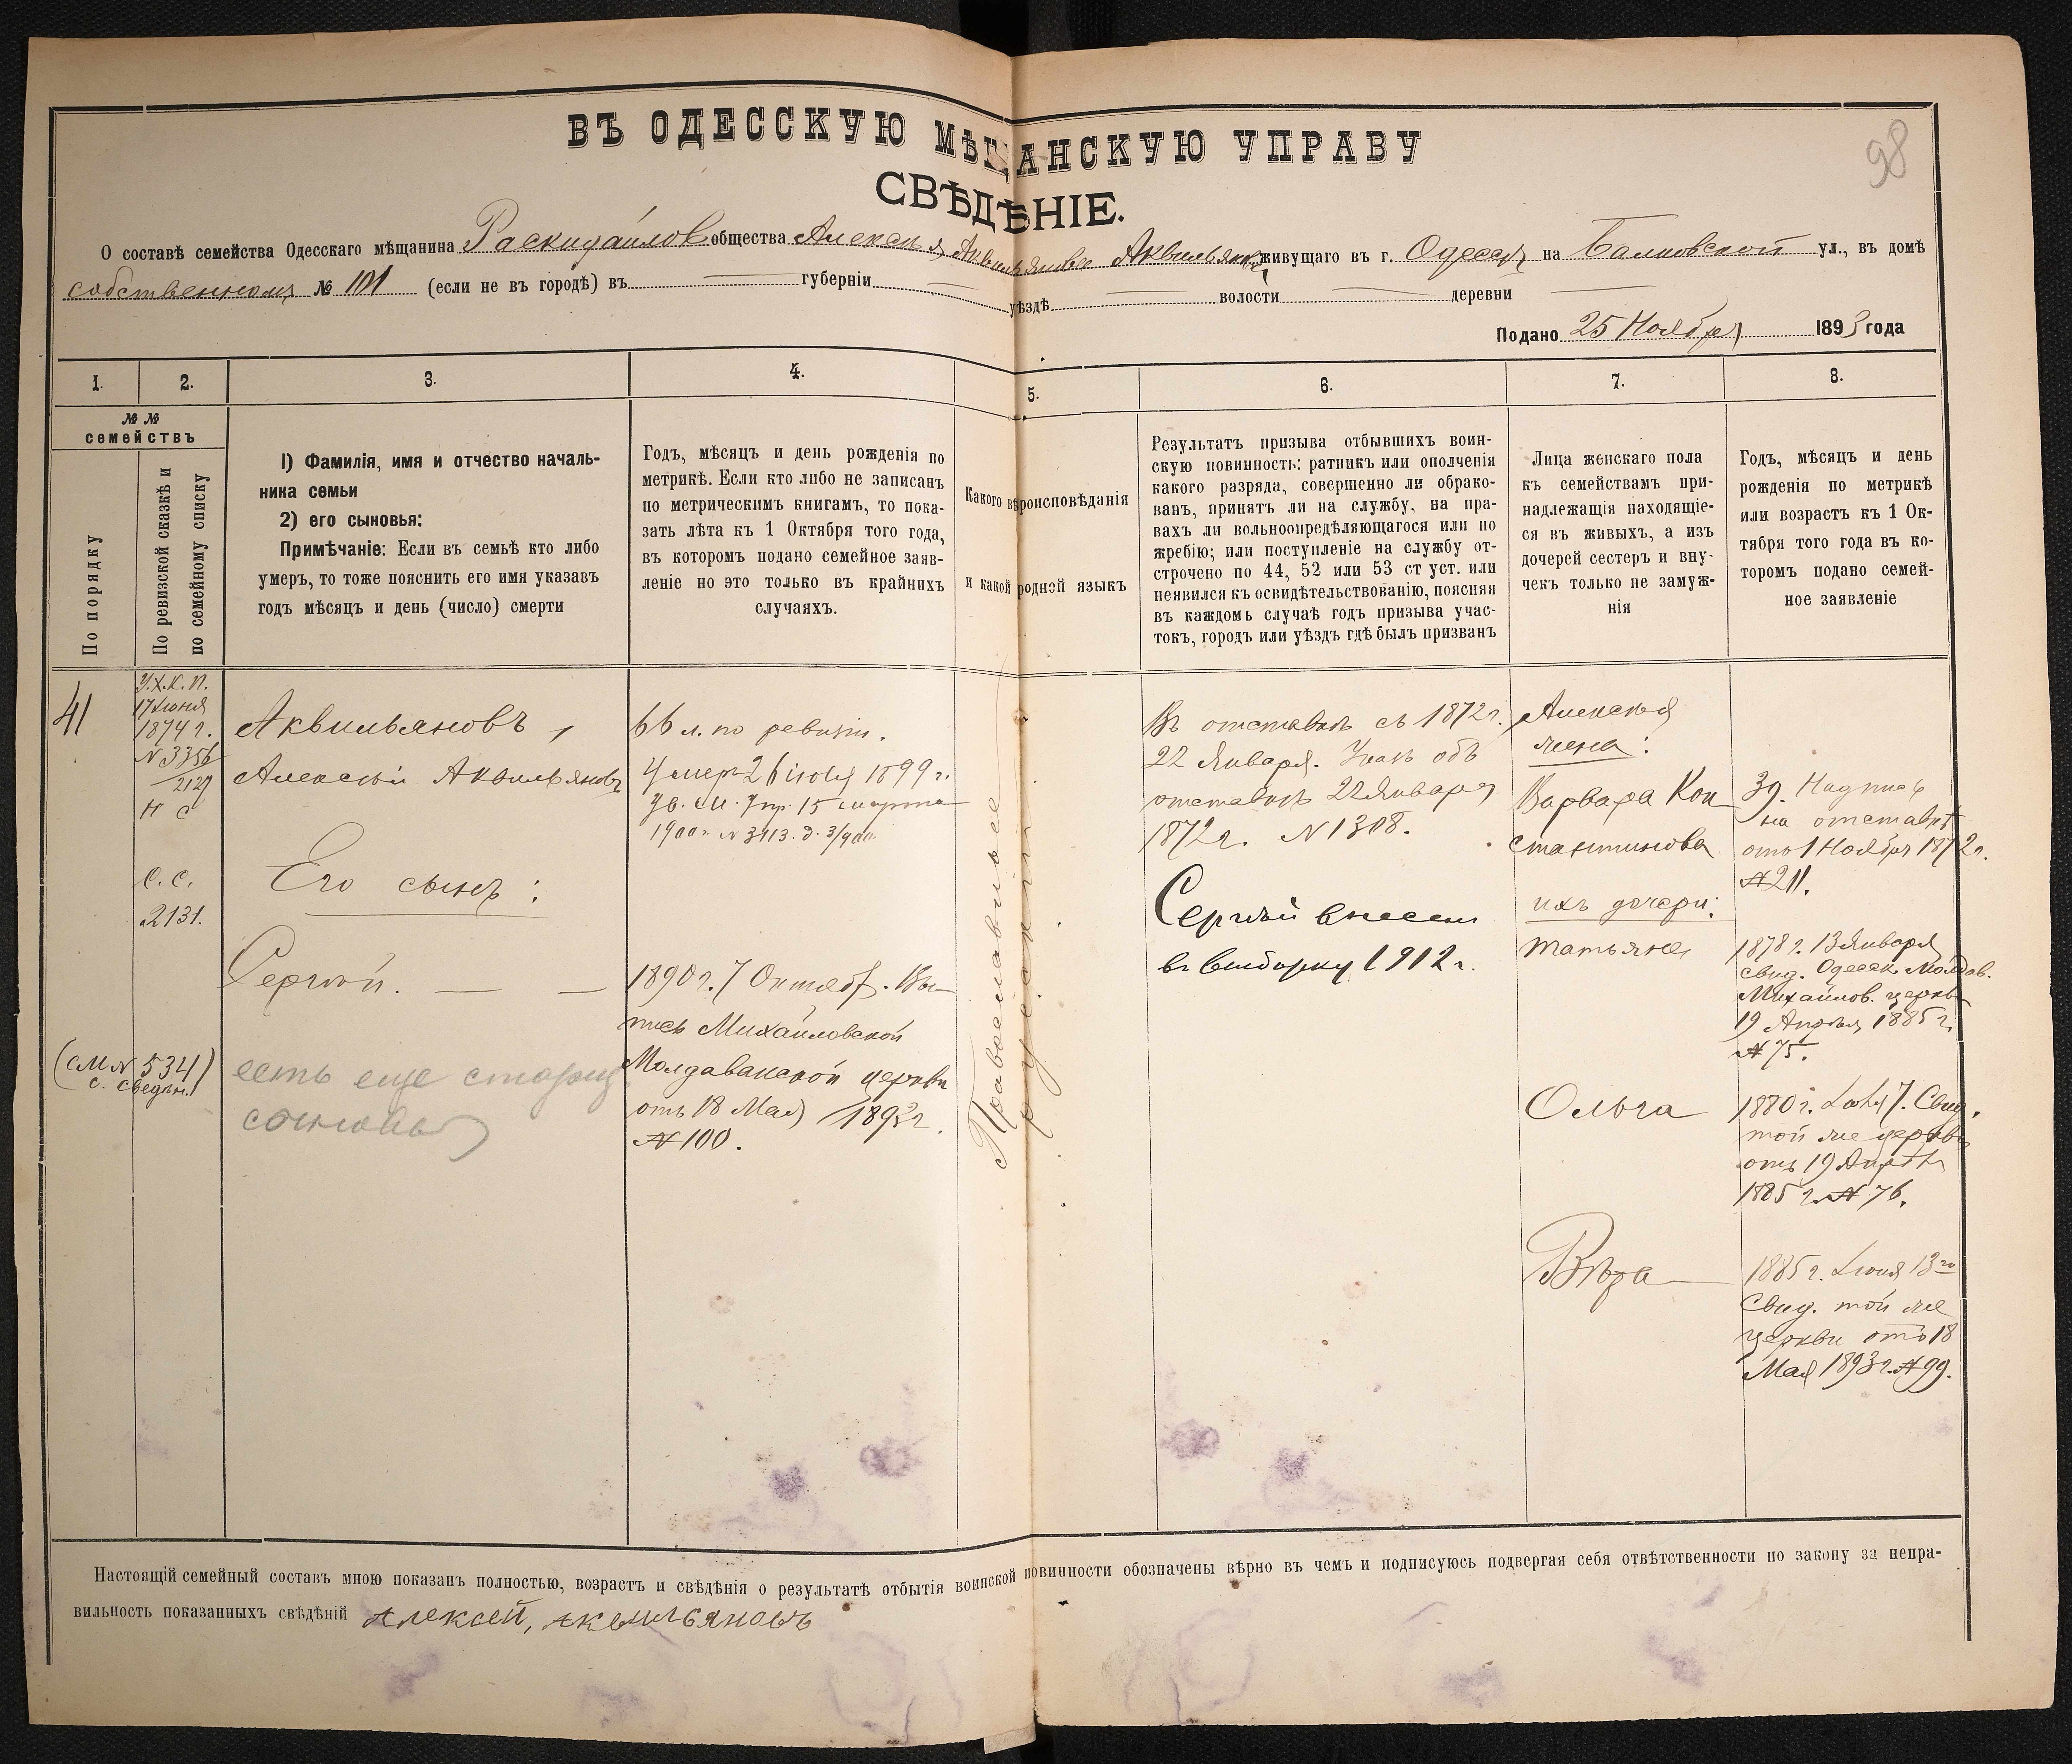 98
ВЪ ОДЕССКУЮ МѢЩАНСКУЮ УПРАВУ
СВѢДѢНІЕ.
О составѣ семейства Одесскаго мѣщанина Раскидайлов общества Алексѣя Аквильянова Аквильянова живущаго въ г. Одессѣ на Балковской ул., въ домѣ
собственномъ № 101 (если не въ городѣ) въ губерніи уѣздѣ волости деревни
Подано 25 Ноября 1893 года
1. 2. 3. 4. 5. 6. 7. 8.
№ №
семействъ
По порядку
По ревизской сказкѣ и
по семейному списку
1) Фамилія, имя и отчество началь-
ника семьи
2) его сыновья:
Примѣчаніе: Если въ семьѣ кто либо
умеръ, то тоже пояснить его имя указавъ
годъ мѣсяцъ и день (число) смерти
Годъ, мѣсяцъ и день рожденія по
метрикѣ. Если кто либо не записанъ
по метрическимъ книгамъ, то пока-
зать лѣта къ 1 Октября того года,
въ которомъ подано семейное заяв-
леніе но это только въ крайнихъ
случаяхъ.
Какого вѣроисповѣданія
и какой родной языкъ
Результатъ призыва отбывшихъ воин-
скую повинность: ратникъ или ополченія
какого разряда, совершенно ли обрако-
ванъ, принятъ ли на службу, на пра-
вахъ ли вольноопредѣляющагося или по
жребію; или поступленіе на службу от-
строчено по 44, 52 или 53 ст уст. или
неявился къ освидѣтельствованію, поясняя
въ каждомъ случаѣ годъ призыва учас-
токъ, городъ или уѣздъ гдѣ былъ призванъ
Лица женскаго пола
къ семействамъ при-
надлежащія находящіе-
ся въ живыхъ, а изъ
дочерей сестеръ и вну-
чекъ только не замуж-
нія
Годъ, мѣсяцъ и день
рожденія по метрикѣ
или возрастъ къ 1 Ок-
тября того года въ ко-
торомъ подано семей-
ное заявленіе
41
У.Х.К.П.
17 Іюня
1874 г.
N 3356
2127
Н С
С.С.
2131.
(см N 534)
с. сведен.
Аквильяновъ,
Алексѣй Аквильяновъ
Его сынъ:
Сергѣй. — —
есть еще старш
сыновья
66 л. по ревизіи.
Умеръ 26 іюля 1899 г.
Ув. См. Упр. 15 марта
1900 г. N 3113. д. 3/900
1890 г. 7 Октябр. Вы-
пись Михайловской
Молдаванской церкви
отъ 18 Мая 1893 г.
№ 100.
Православные
русскій
Въ отставкѣ съ 1872 г.
22 Января. Указъ объ
отставкѣ 22 Января
1872 г. N 1308.
Сергѣй внесен
въ выборку 1912 г.
Алексѣя
жена:
Варвара Кон
стантинова
ихъ дочери:
Татьяна
Ольга
Вѣра —
39. Надпись
на отставкѣ
отъ 1 Ноября 1872 г.
№ 211.
1878 г. 13 Января
свид. Одесск. Молдав.
Михайлов. церкви
19 Апрѣля 1885 г.
№ 75.
1880 г. Іюля 7. Свид.
той же церкви
отъ 19 Апрѣля
1885 г. № 76.
1885 г. Іюня 13го
Свид. той же
церкви отъ 18
Мая 1893 г. № 99.
Настоящій семейный составъ мною показанъ полностью, возрастъ и свѣдѣнія о результатѣ отбытія воинской повинности обозначены вѣрно въ чемъ и подписуюсь подвергая себя отвѣтственности по закону за непра-
вильность показанныхъ свѣдѣній Алексей, Аквильяновъ